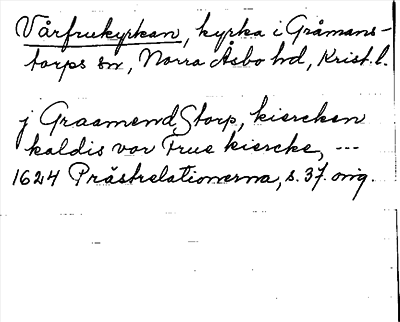 Vårfrukyrkan, kyrka i Gråmans-
torps sn, Norra Åsbo hd, Krist. l.
j Graamend Storp, kiercken
kaldis vor Frue kiercke, ---
1624 Prästrelationerna, s. 37. orig.